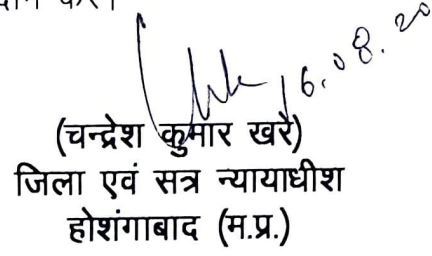 करें
16.08.20
(चन्द्रेश कुमार खरे)
जिला एवं सत्र न्यायाधीश
होशंगाबाद (म.प्र.)